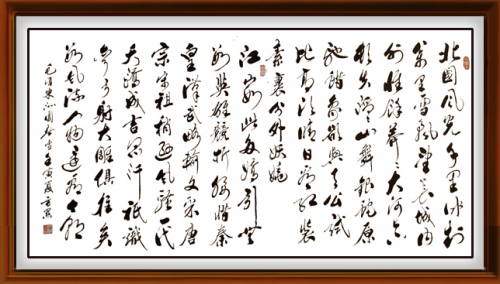 北国风光千里冰封
万里雪飘望长城内
外惟馀莽莽大河上下
顿失滔滔山舞银蛇原
驰蜡象欲与天公试
比高须晴日看红装
素裹分外妖娆
江山如此多娇引无
数英雄竞折腰惜秦
皇汉武略输文采唐
宗宋祖稍逊风骚一代
天骄成吉思汗祇识
弯弓射大雕俱往矣
数风流人物还看今朝
毛泽东沁园春雪壬寅夏